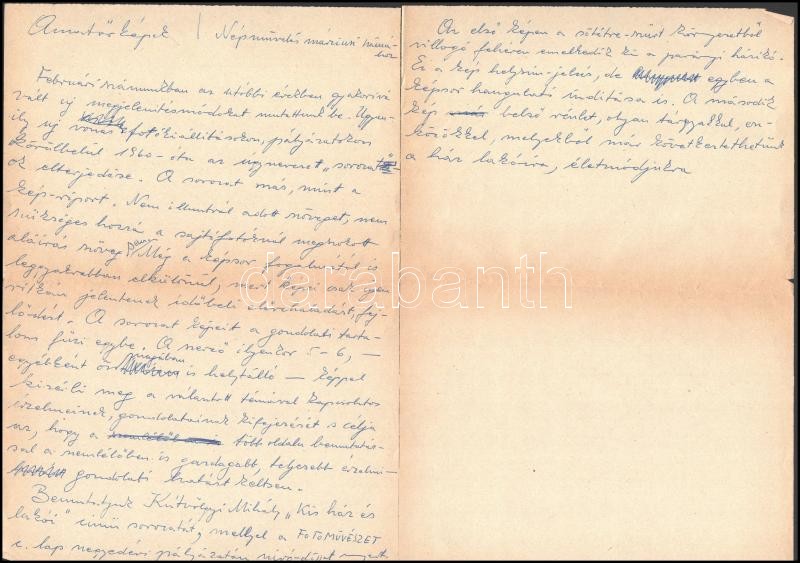 Amatőrképek / Népművelés márciusi számá-
hoz
Februári számunkban az utóbbi években gyakorivá
vált új megjelenítésmódokat mutattunk be. Ugyan-
ily új vonás fotókiállításokon, pályázatokon
körülbelül 1960-óta az úgynevezett „sorozat"-
ok elterjedése. A sorozat más, mint a
kép-riport. Nem illusztrál adott szöveget, nem
szükséges hozzá a sajtófotóknál megszokott
aláírás szöveg sem. Még a képsor fogalmától is
leggyakrabban elkülönül, mert képei csak igen
ritkán jelentenek időbeli előrehaladást, fej-
lődést. A sorozat képeit a gondolati tarta-
lom fűzi egybe. A szerző ilyenkor 5-6, —
egyébként önmagában is helytálló — képpel
kíséili meg a választott témával kapcsolatos
érzelmeinek, gondolatainak kifejezését s célja
az, hogy a több oldalú bemutatás-
sal a szemlélőben is gazdagabb, teljesebb érzelmi-
gondolati hatást keltsen.
Bemutatjuk Kútvölgyi Mihály „Kis ház és
lakói" című sorozatát, mellyel a FOTOMŰVÉSZET
c. lap negyedévi pályázatán nívódíjat nyert.
Az első képen a sötétre-süst környezetből
villogó fehéren emelkedik ki a parányi házikó.
Ez a kép helyszín-jelzés, de egyben a
képsor hangulati indítása is. A második
kép belső részlet, olyan tárgyakkal, esz-
közökkel, melyekből már következtethetünk
a ház lakóira, életmódjukra
darabanth